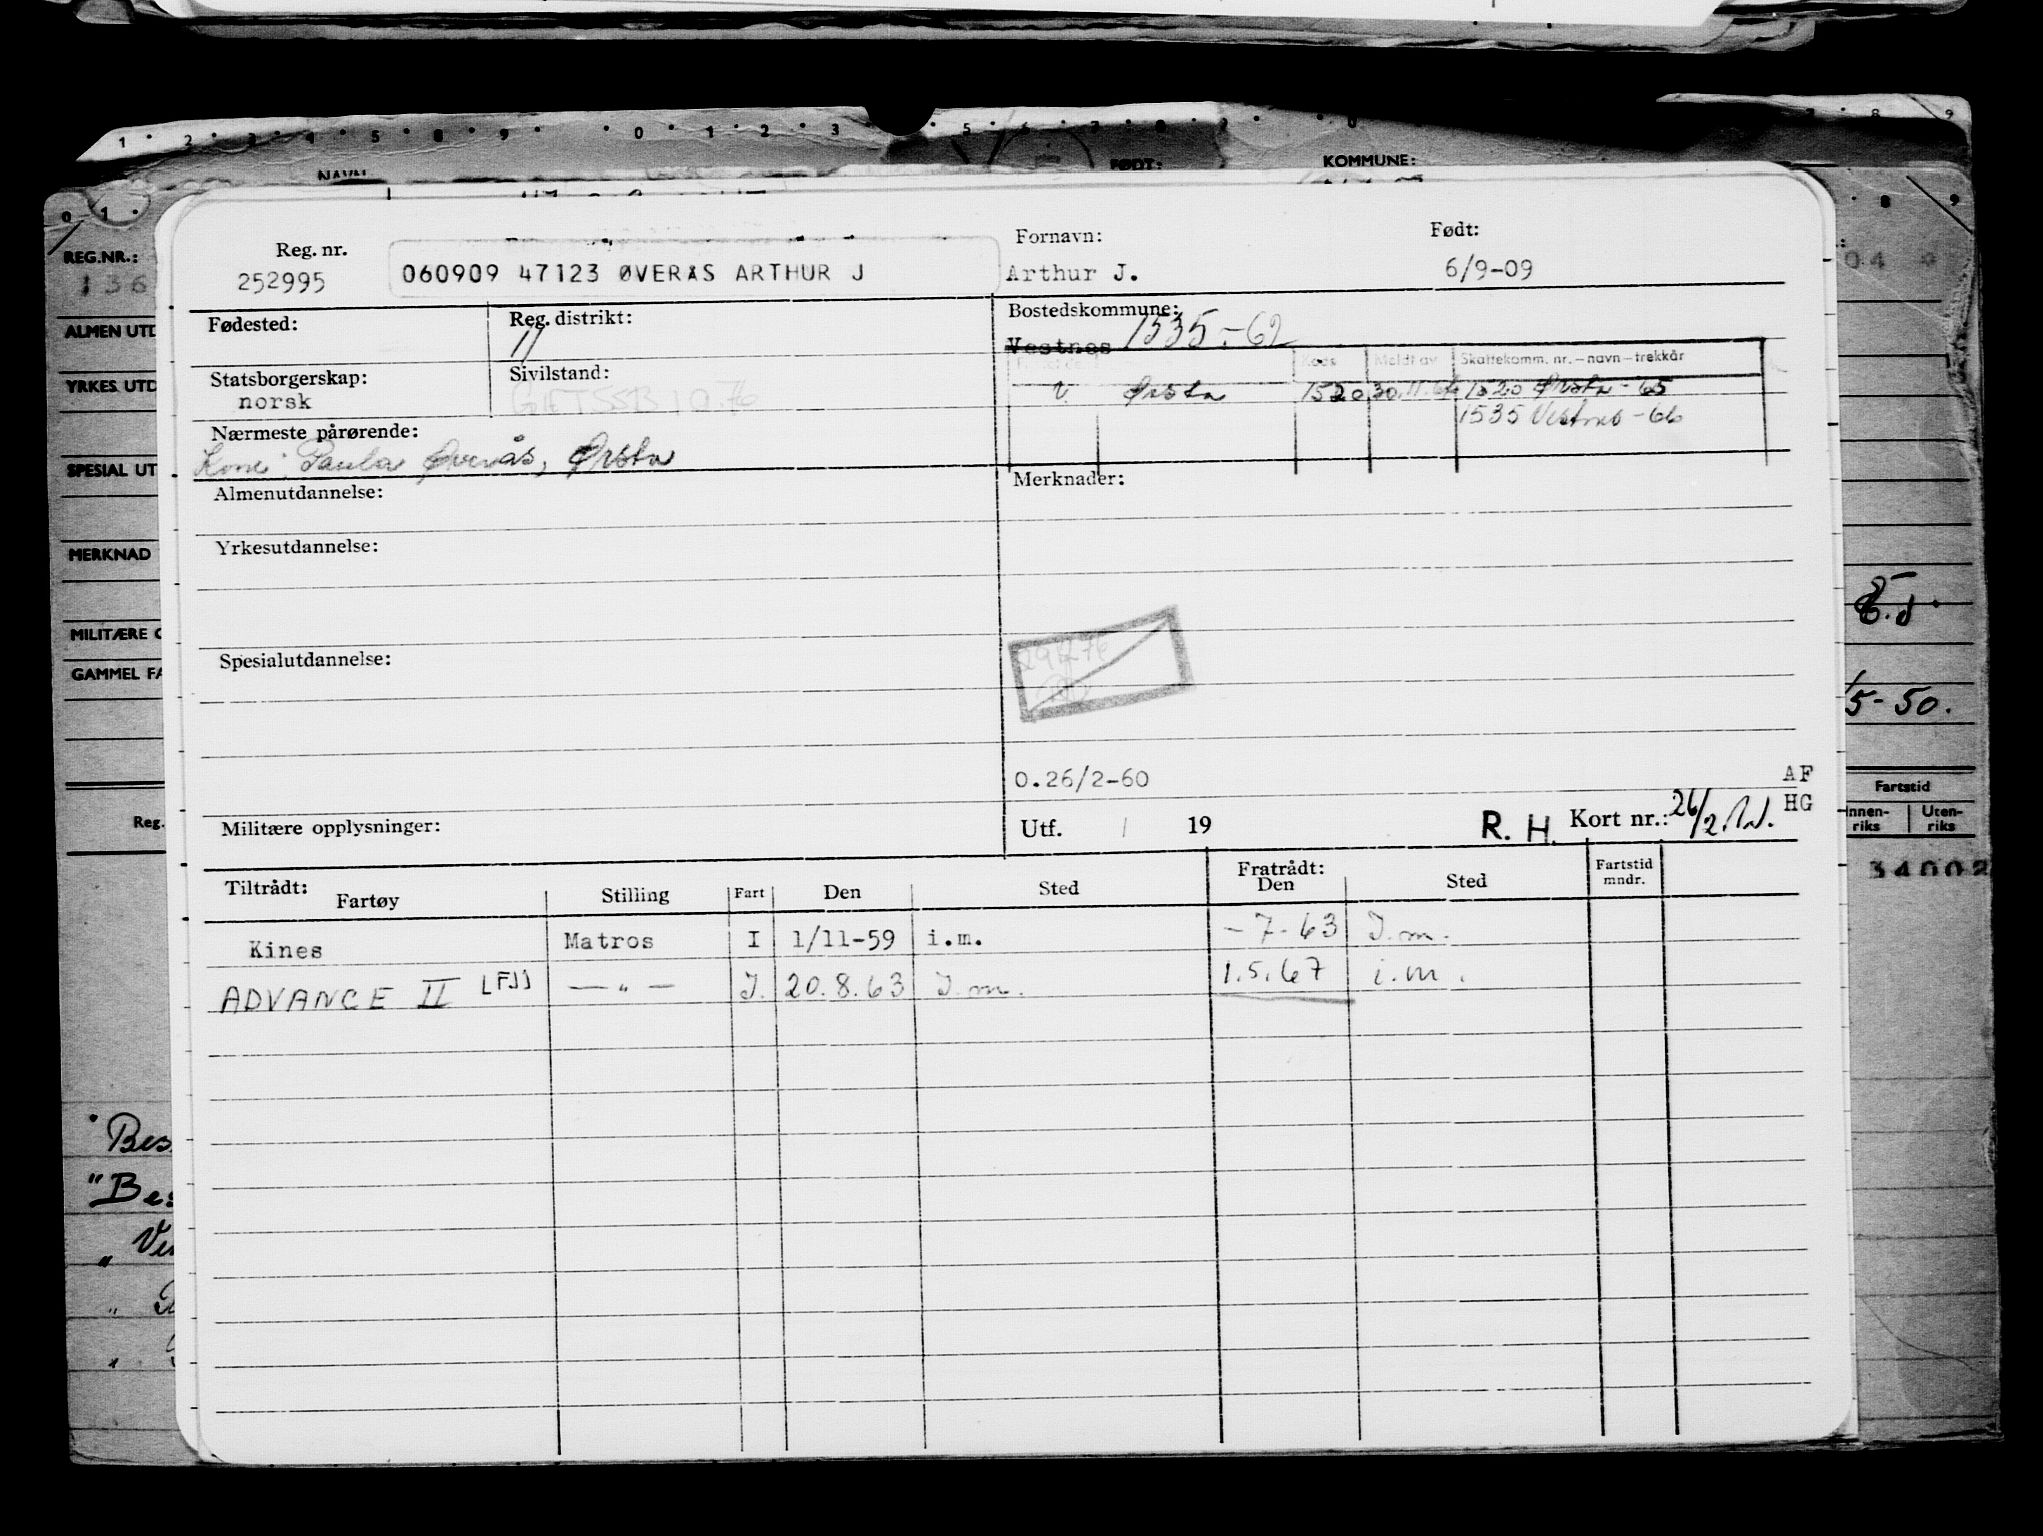 1 2 3 4 5 8 9 0 1 2 3 5 6 7 8 9
FØDT: KOMMUNE:
REG.NR.:
136
ALMEN UTD
YRKES UTD
SPESIAL UT
MERKNAD
MILITÆRE O
GAMMEL FA
Reg.
Reg. nr. Fornavn: Født:
252995 060909 47123 ØVERÅS ARTHUR J Arthur J. 6/9-09
Fødested: Reg. distrikt: Bostedskommune:
11 Vestnes 1535-62
Kode Meldt av Skattekomm. nr.-navn-trekkår
Statsborgerskap: Sivilstand:
norsk V. Ørsta 1520 30.11.64 1520 Ørsta -65
1535 Vestnes -66
Nærmeste pårørende:
Kone: Paula Øverås, Ørsta
Almenutdannelse: Merknader:
Yrkesutdannelse:
Spesialutdannelse:
0.26/2-60 AF
Militære opplysninger: Utf. / 19 R. H. Kort nr.: 26/2 HG
Tiltrådt: Fratrådt: Fartstid
Fartøy Stilling Fart Den Sted Den Sted mndr.
Kines Matros I 1/11-59 i.m. -7-63 I.m.
ADVANCE II [FJ] — " — I. 20.8.63 I.m. 1.5.67 i.m.
5-50.
Fartstid
Innen-riks Uten-riks
34002
Bes
"Bes
" Ve